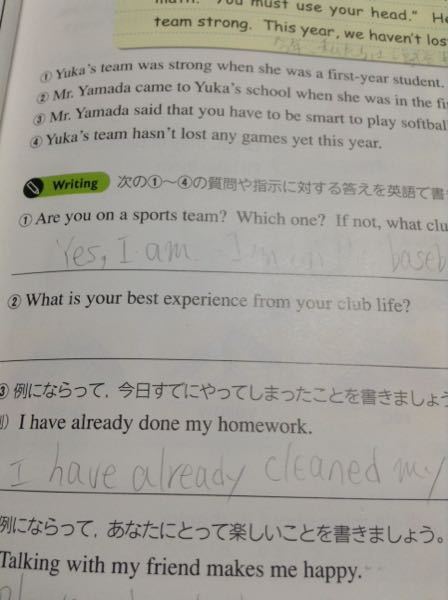 math. "You must use your head." He
team strong. This year, we haven't los
① Yuka's team was strong when she was a first-year student.
② Mr. Yamada came to Yuka's school when she was in the fi
③ Mr. Yamada said that you have to be smart to play softbal
④ Yuka's team hasn't lost any games yet this year.
Writing 次の①〜④の質問や指示に対する答えを英語で書
① Are you on a sports team? Which one? If not, what clu
Yes, I am. I'm baseb
② What is your best experience from your club life?
③ 例にならって，今日すでにやってしまったことを書きましょう
例) I have already done my homework.
I have already cleaned my
例にならって，あなたにとって楽しいことを書きましょう。
Talking with my friend makes me happy.